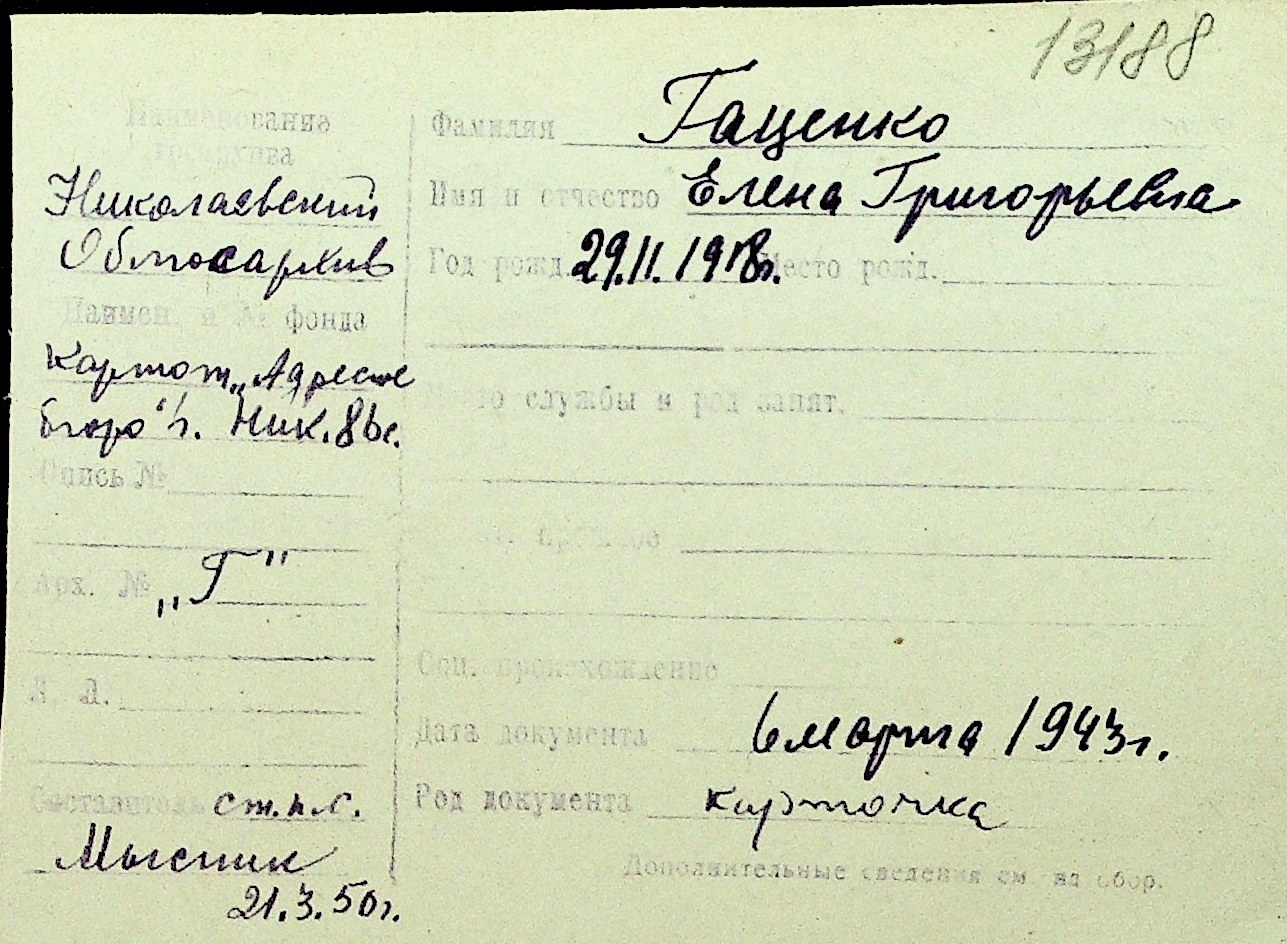 13188
Наименование
госархива
Николаевский
Облгосархив
Наимен. и № фонда
Картот. „Адресное
бюро" г. Ник.
Опись №
Арх. № „Г"
Л. Л.
Составитель ст.н.с.
Мысник
21.3.50г.
Фамилия Гаценко
Имя и отчество Елена Григорьевна
Год рожд. 29.11.1918г. Место рожд.
Место службы и род занят.
Соц. происхождение
Дата документа 6 марта 1943г.
Род документа карточка
Дополнительные сведения см. на обор.